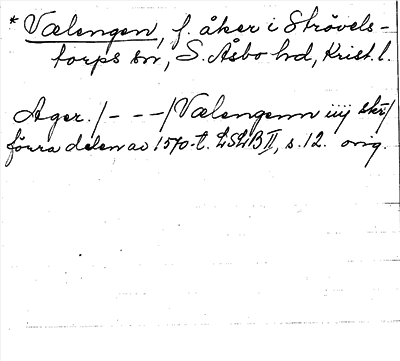 * Vælengen, f. åker i Strövels-
torps sn, S. Åsbo hd, Krist. l.
Ager. /- - -/ Vælengenn iiij skr/
förra delen av 1570-t. LSLB II, s. 12. orig.